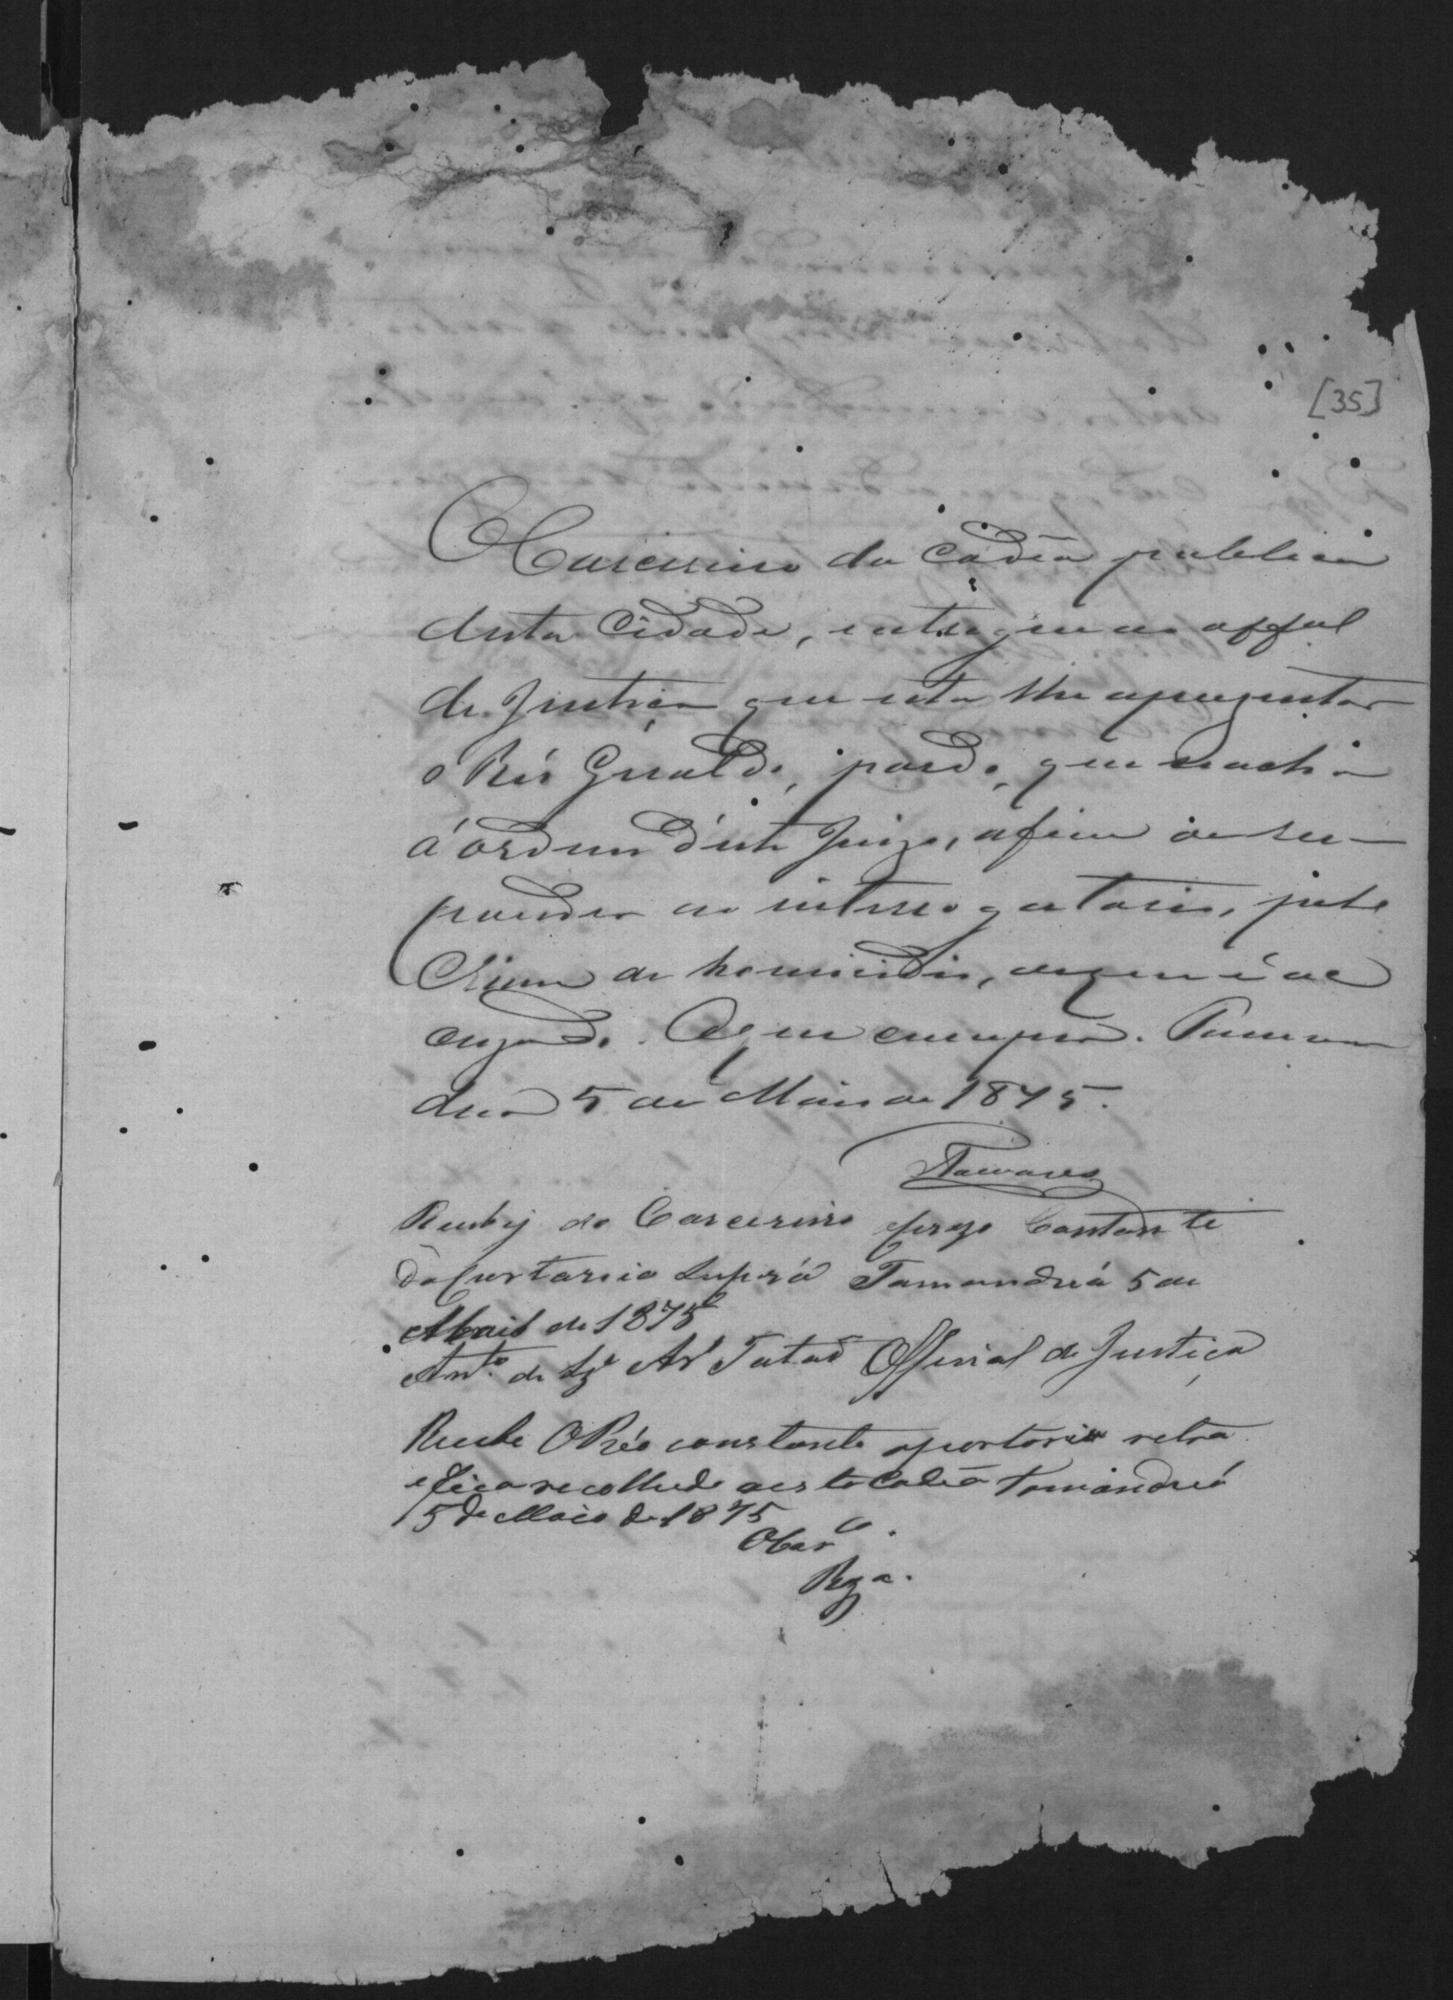 [35]
O Carcereiro da Cadêa publica
desta Cidade, entregue ao offal
de Justiça que esta lhe aprezentar
o Réo Geraldo, pardo, que se acha
á ordem d'este Juizo, afim de res-
ponder ao interrogatorio, pelo
Crime de homicidio, de que é ac
cuzado. O que cumpra. Taman
dua 5 de Maio de 1875.
Tavares
Recebij do Carcereiro o prezo Constante
da portaria supra Tamanduá 5 de
Abril de 1875
Antº. de Sza Tatad Official de Justiça
Recebe O Réo constante a portaria retra
e fica recolhido nesta Cadêa Tamanduá
5 de Maio de 1875
O Carº.